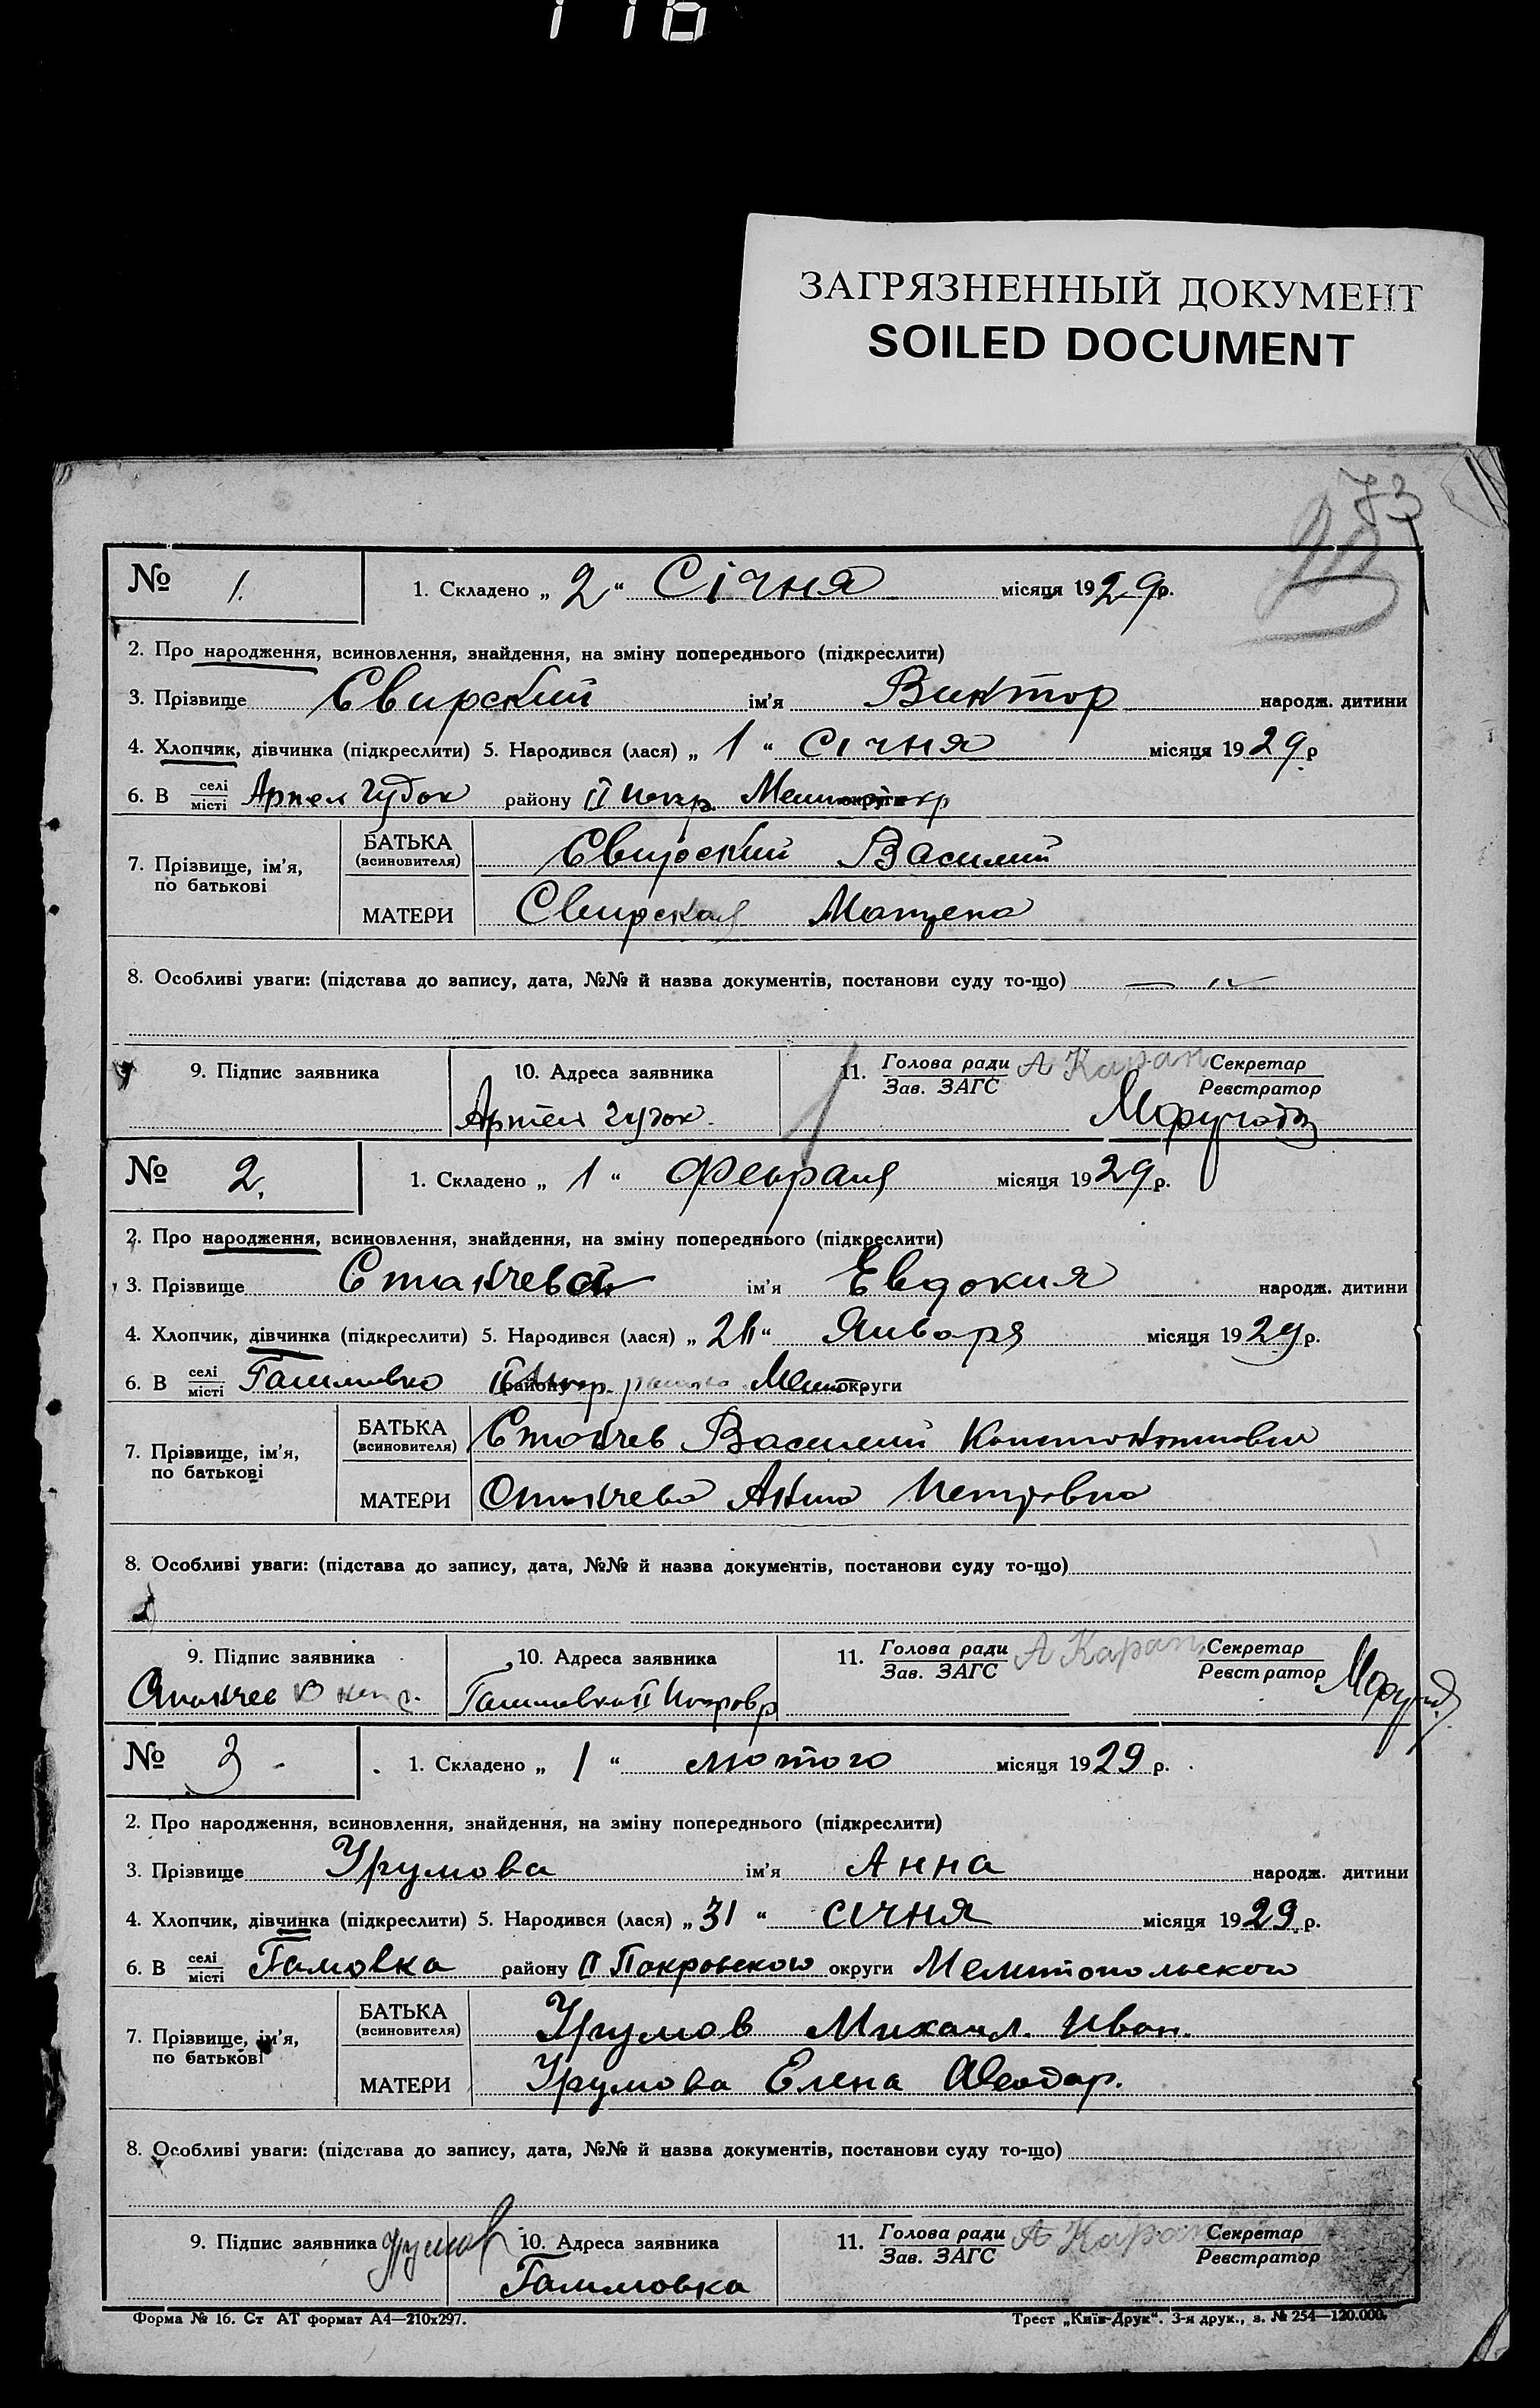 116
ЗАГРЯЗНЕННЫЙ ДОКУМЕНТ
SOILED DOCUMENT
73
№ 1. 1. Складено „ 2 “ Січня місяця 1929р.
2. Про народження, всиновлення, знайдення, на зміну попереднього (підкреслити)
3. Прізвище Свирский ім'я Виктор народж. дитини
4. Хлопчик, дівчинка (підкреслити) 5. Народився (лася) „ 1 “ січня місяця 1929 р
6. В селі місті Артел Гудок району II Покр. округи
7. Прізвище, ім'я, по батькові
БАТЬКА (всиновителя) Свирский Василий
МАТЕРИ Свирская
8. Особливі уваги: (підстава до запису, дата, №№ й назва документів, постанови суду то-що)
9. Підпис заявника 10. Адреса заявника 11. Голова ради Зав. ЗАГС А Каран Секретар Реєстратор
Артел гудок.
№ 2. 1. Складено „ 1 “ Февраля місяця 1929 р.
2. Про народження, всиновлення, знайдення, на зміну попереднього (підкреслити)
3. Прізвище ім'я Евдокия народж. дитини
4. Хлопчик, дівчинка (підкреслити) 5. Народився (лася) „ “ Января місяця 1929 р.
6. В селі місті району округи
7. Прізвище, ім'я, по батькові
БАТЬКА (всиновителя) Василий Константинович
МАТЕРИ Анна Петровна
8. Особливі уваги: (підстава до запису, дата, №№ й назва документів, постанови суду то-що)
9. Підпис заявника 10. Адреса заявника 11. Голова ради Зав. ЗАГС А Каран Секретар Реєстратор
№ 3 - 1. Складено „ 1 “ лютого місяця 1929 р.
2. Про народження, всиновлення, знайдення, на зміну попереднього (підкреслити)
3. Прізвище Урумова ім'я Анна народж. дитини
4. Хлопчик, дівчинка (підкреслити) 5. Народився (лася) „ 31 “ січня місяця 1929 р.
6. В селі місті Гамовка району II Покровского округи Мелитопольского
7. Прізвище, ім'я, по батькові
БАТЬКА (всиновителя) Урумов Михаил Иван.
МАТЕРИ Урумова Елена Феодор.
8. Особливі уваги: (підстава до запису, дата, №№ й назва документів, постанови суду то-що)
9. Підпис заявника Урумов 10. Адреса заявника 11. Голова ради Зав. ЗАГС А Каран Секретар Реєстратор
Форма № 16. Ст АТ формат А4—210х297. Трест „Київ-Друк“. 3-я друк., з. № 254—120.000.